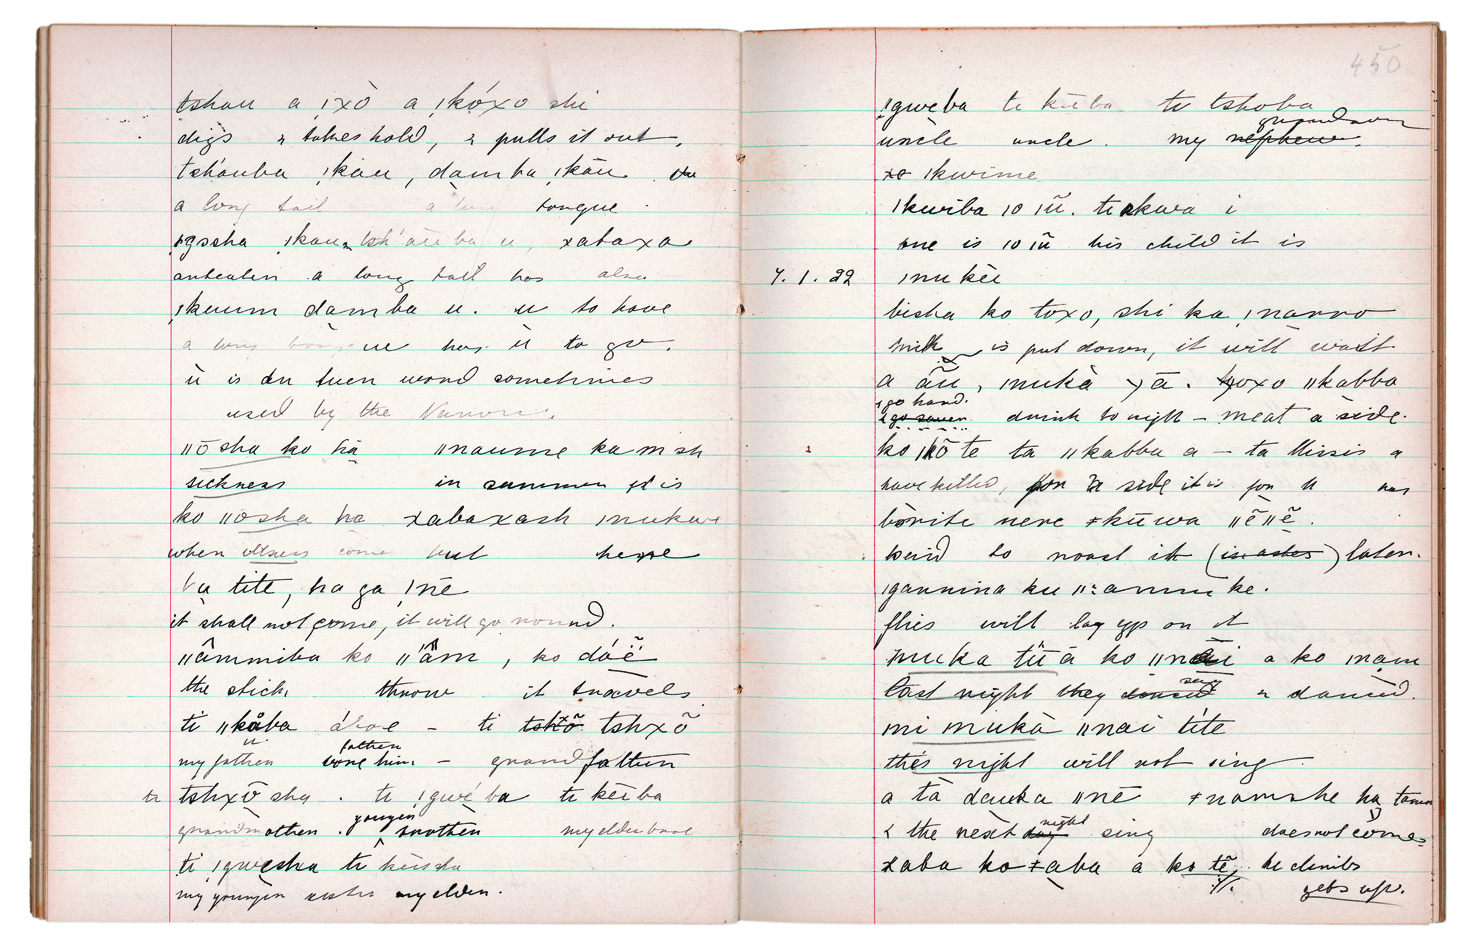 tshau a ǃxò a ǃkóxo shi
digs & takes hold, & pulls it out.
tsháuba ǃkau, dàmba ǃkāu.
a long tail a long tongue.
ǃkau tsh'āu ba u, xabaxa
anteater a long tail has also
ǀkuum dàmba u. u to have
a long tongue has. ù to go.
ù is an tuen word sometimes
used by the Naron.
ǁōsha ko hà ǁnaume ka m sh
sickness in summer it is
ko ǁosha ha xabaxash ǀnukwe
when illness come but here
tite, ha ga ǀnē
it shall not come, it will go round.
ǁâmmiba ko ǁâm, ko dáë
the stick throw it travels
ti ǁkåba ábae – ti tshxõ tshxõ
father
my father bore him – grandfather
ti tshxō sha. ti ǃgwéba ti kēiba
younger
grandmother. brother my elder bro
ti ǃgwesha ti kēisha
my younger sister my elder.
450
ǃgweba ti kēiba ti tshoba
grandson
uncle uncle. my nephew.
xo ǀkwime
ǀkwiba ǀo ǀū. ti akwa i
one is ǀo ǀū his child it is
7.1.22 ǀnu kēi
bisha ko toxo, shi ka ǃnarro
milk is put down, it will wait
a āu, ǀnukà ā. xoxo ǁkabba
& go hard.
& go sower drink to night – meat a side.
ko ǀkōte ta ǁkabba a – ta Missis a
have killed, for a side it is for u
bōrite nere ǂkūwa ǁēǁē.
said to roast it (in ashes) later.
ǀgannina ku ǁammi ke.
flies will lay eggs on it
muka tū ā ko ǁnāi a ko ǀnam
sang
last night they danced & danced.
mi mukà ǁnai tite
this night will not sing
a tà dauka ǁnē ǂnamshe ha tama
night
& the next day sing does not come
xaba ko ǂaba a ko tē, he climbs
gets up.